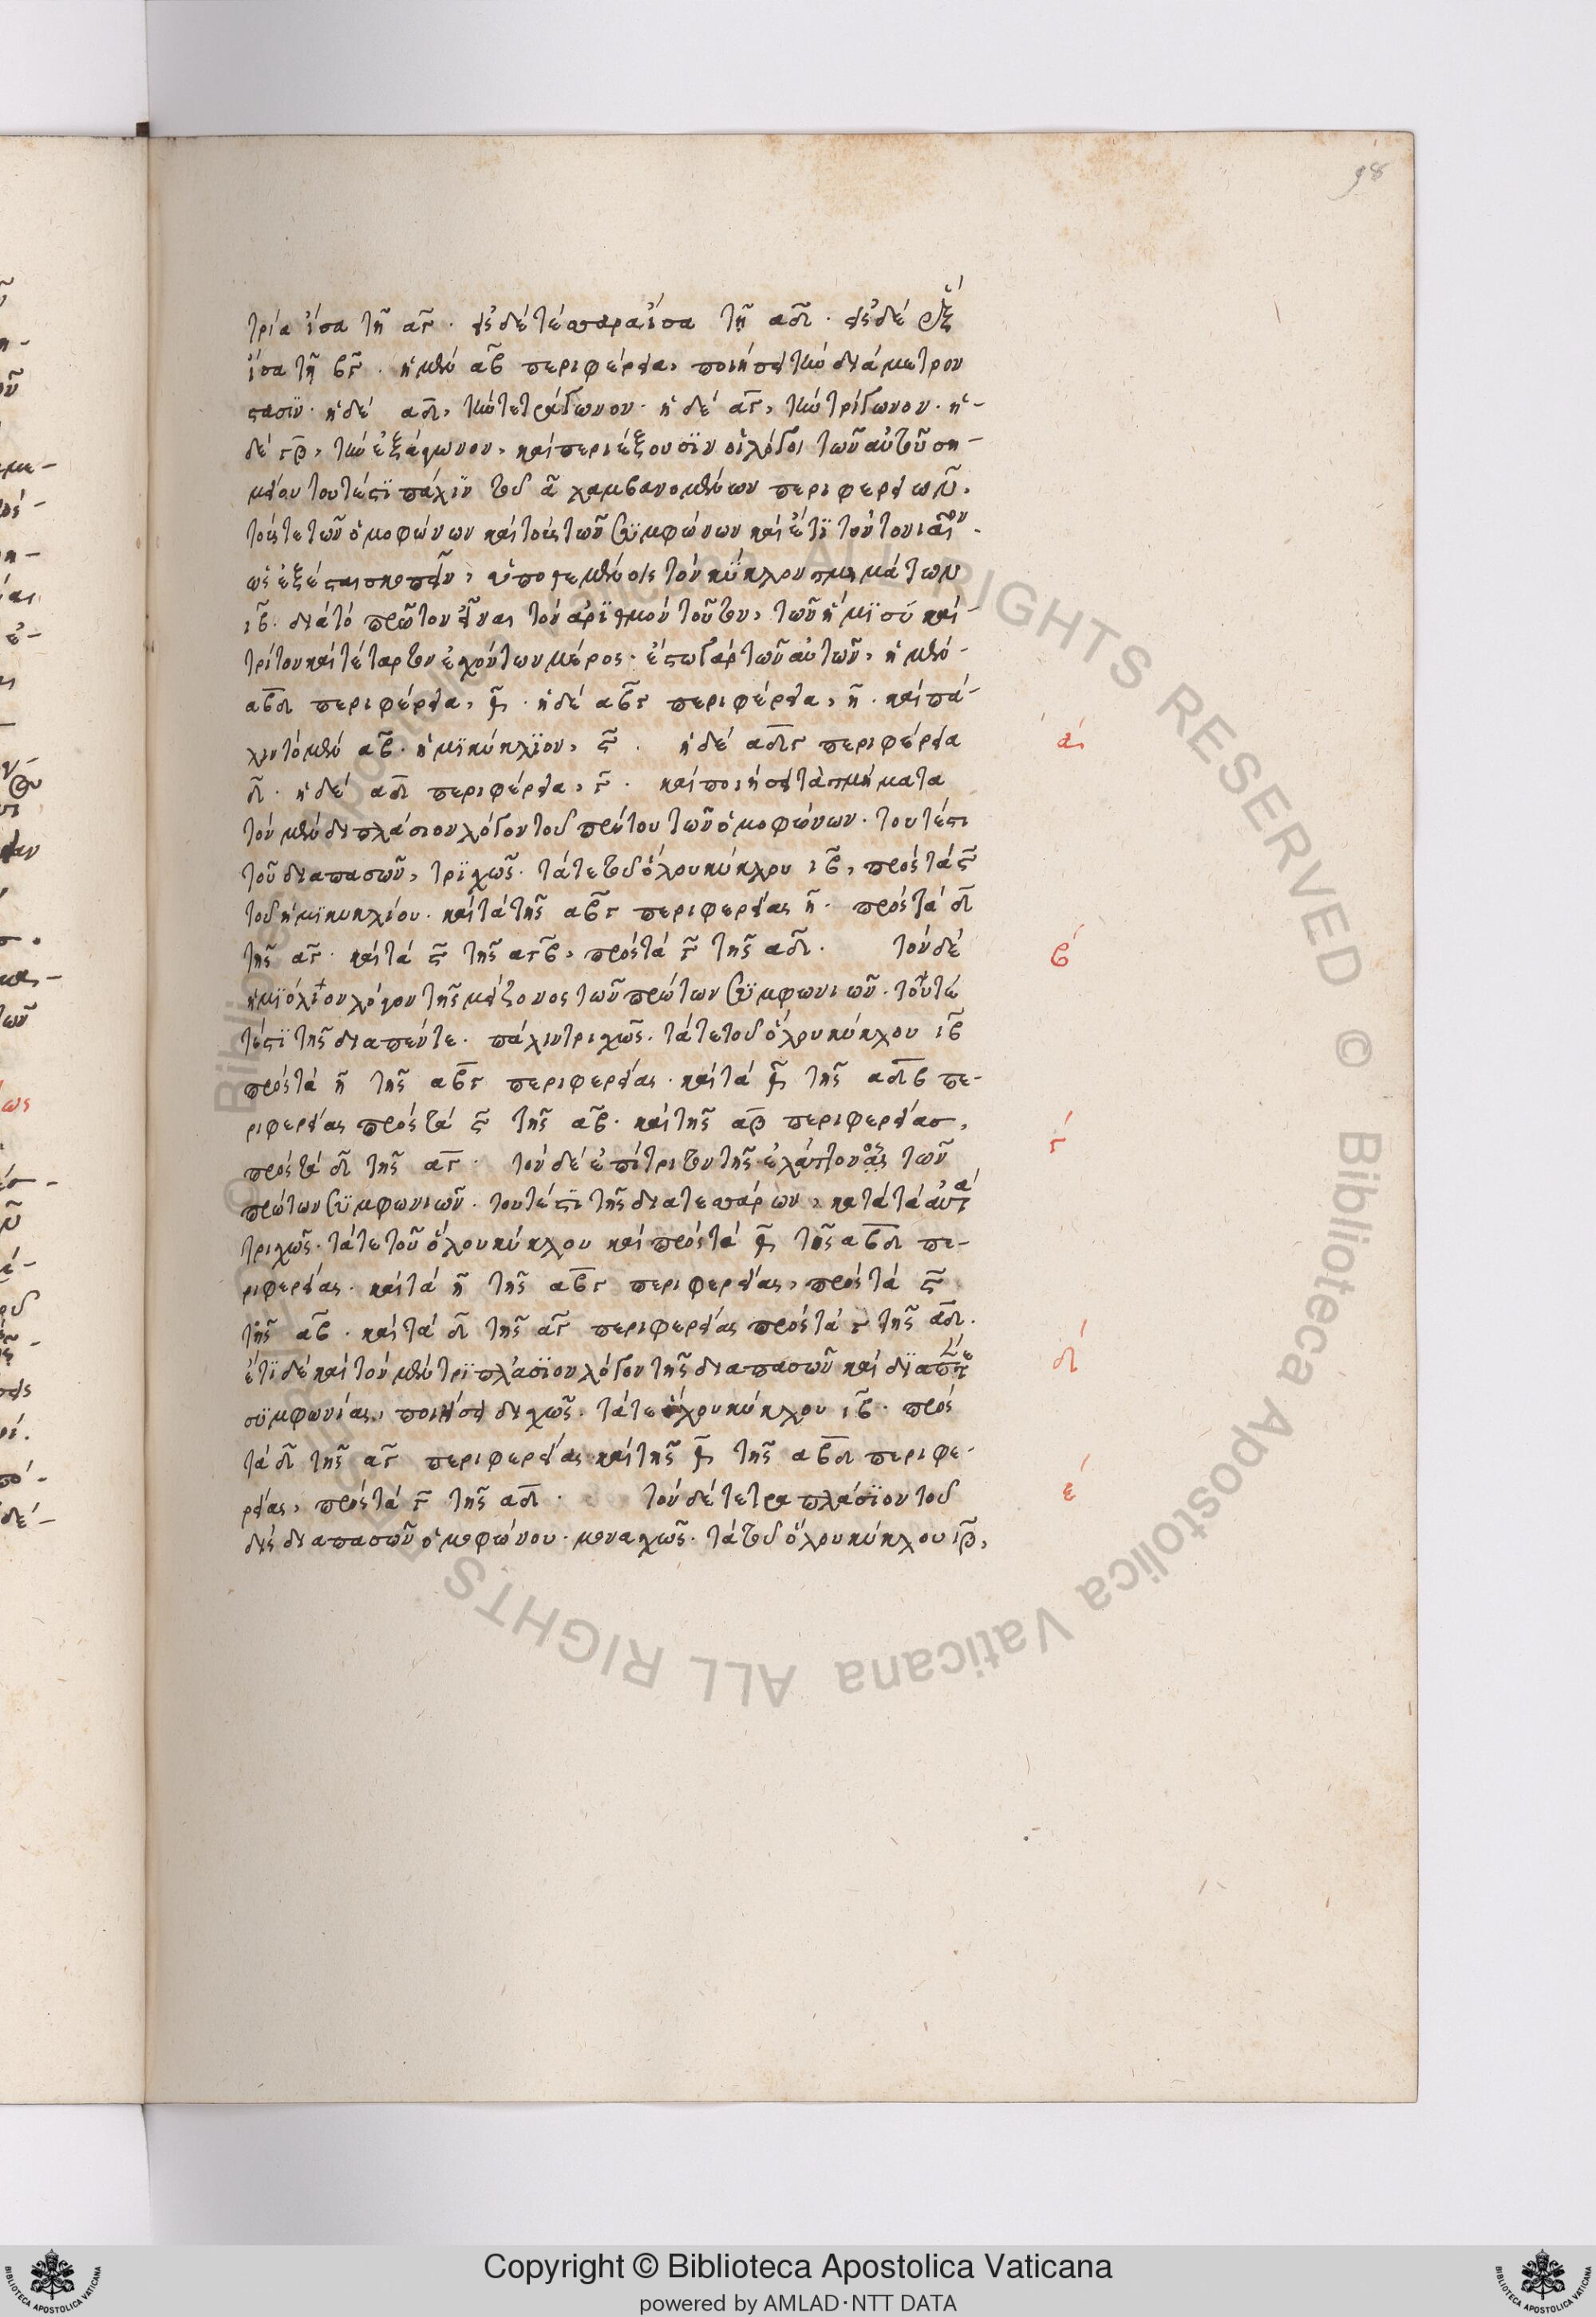 98
τρία ἴσα τῆ αγ̅. εἰς δὲ τέσσαρα ἴσα τῆ αδ̅. εἰς δὲ ἓξ
ἴσα τῆ βγ̅. ἡ μὲν αβ̅ περιφέρεια, ποιήσει τὴν διάμετρον
στάσϊν. ἡ δὲ αδ̅, τὴν τετράγωνον. ἡ δὲ αγ̅, τὴν τρίγωνον. ἡ-
δὲ γβ̅, τὴν ἑξάγωνον, καὶ περιέξουσϊν οἱ λόγοι τῶν αὐτοῦ ση-
μείου τουτέστϊ πάλϊν τοῦ α̅ λαμβανομένων περιφερειῶν,
τούς τε τῶν ὁμοφώνων καὶ τοὺς τῶν συμφώνων καὶ ἔτϊ τὸν τονιαῖον.
ὡς ἔξεσται σκοπεῖν, ὑποθεμένοις τὸν κύκλον τμημάτων
ιβ̅. διὰ τὸ πρῶτον εἶναι τὸν ἀρϊθμὸν τοῦτον, τῶν ἥμϊσυ καὶ
τρίτον καὶ τέταρτον ἐχόντων μέρος. ἔστω γὰρ τῶν αὐτῶν, ἡ μὲν-
αβδ̅ περιφέρεια, θ̅. ἡ δὲ αβγ̅ περιφέρεια, η̅. καὶ πά-
λιν τὸ μὲν αβ̅. ἡμϊκύκλϊον, ϛ̅. ἡ δὲ αδγ̅ περιφέρεια
α΄
δ̅. ἡ δὲ αδ̅ περιφέρεια, γ̅. καὶ ποιήσει τὰ τμήματα
τὸν μὲν διπλάσιον λόγον τοῦ πρώτου τῶν ὁμοφώνων. τουτέστι
τοῦ διαπασῶν, τρϊχῶς. τά τε τοῦ ὅλου κύκλου ιβ̅, πρὸς τὰ ϛ̅
τοῦ ἡμϊκυκλίου. καὶ τὰ τῆς αβγ̅ περιφερείας η̅. πρὸς τὰ δ̅
τῆς αγ̅. καὶ τὰ ϛ̅ τῆς αγβ̅, πρὸς τὰ γ̅ τῆς αδ̅. τὸν δὲ
β΄
ἡμϊόλιον λόγον τῆς μείζονος τῶν πρώτων συμφωνιῶν. τουτέ
τέστϊ τῆς διαπέντε. πάλιν τριχῶς. τά τε τοῦ ὅλου κύκλου ιβ̅
πρὸς τὰ η̅ τῆς αβγ̅ περιφερείας. καὶ τὰ θ̅ τῆς αδβ̅ πε-
ριφερείας πρὸς τὰ ϛ̅ τῆς αβ̅. καὶ τῆς αβ̅ περιφερείας,
γ΄
πρὸς τὰ δ̅ τῆς αγ̅. τὸν δὲ ἐπίτριτον τῆς ἐλάττονος τῶν
πρώτων συμφωνιῶν. τουτέστϊ τῆς διατεσσάρων, κατὰ τὰ αὐτὰ
τριχῶς. τά τε τοῦ ὅλου κύκλου καὶ πρὸς τὰ θ̅ τῆς αβδ̅ πε-
ριφερείας. καὶ τὰ η̅ τῆς αβγ̅ περιφερείας, πρὸς τὰ ϛ̅
τῆς αβ̅. καὶ τὰ δ̅ τῆς αγ̅ περιφερείας πρὸς τὰ γ τῆς αδ̅.
ἔτϊ δὲ καὶ τὸν μὲν τρϊπλάσϊον λόγον τῆς διαπασῶν καὶ δϊαπέντε
δ΄
σϋμφωνίας, ποιήσει διχῶς. τά τε ὅλου κύκλου ιβ̅. πρὸς
τὰ δ̅ τῆς αγ̅ περιφερείας καὶ τῆς θ̅ τῆς αβδ̅ περιφε-
ρείας, πρὸς τὰ γ̅ τῆς αδ̅. τὸν δὲ τετραπλάσϊον τοῦ
ε΄
δὶς διαπασῶν ὁμοφώνου. μοναχῶς. τὰ τοῦ ὅλου κύκλου ιβ̅,
Copyright © Biblioteca Apostolica Vaticana
powered by AMLAD·NTT DATA